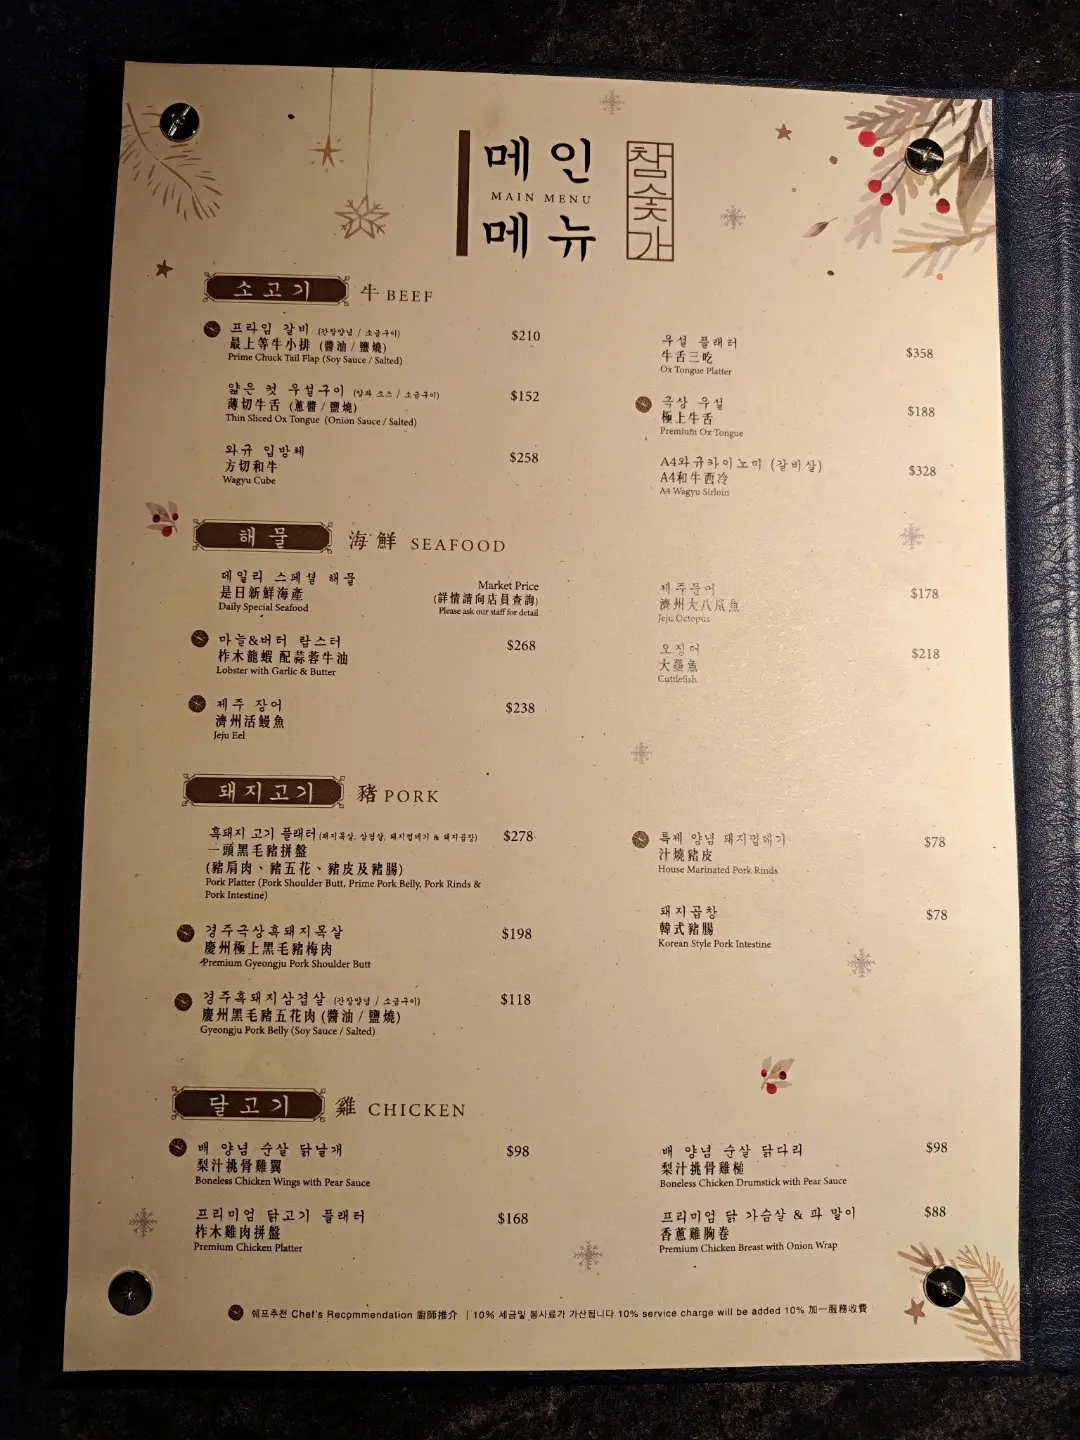 메인
MAIN MENU
메뉴
참숯가
소고기 牛 BEEF
프라임 갈비 (간장양념 / 소금구이) $210
最上等牛小排 (醬油 / 鹽燒)
Prime Chuck Tail Flap (Soy Sauce / Salted)
얇은 컷 우설구이 (양파 소스 / 소금구이) $152
薄切牛舌 (蔥醬 / 鹽燒)
Thin Sliced Ox Tongue (Onion Sauce / Salted)
와규 입방체 $258
方切和牛
Wagyu Cube
우설 플래터 $358
牛舌三吃
Ox Tongue Platter
극상 우설 $188
極上牛舌
Premium Ox Tongue
A4와규카이노미 (갈비살) $328
A4和牛西冷
A4 Wagyu Sirloin
해물 海鮮 SEAFOOD
데일리 스페셜 해물 Market Price
是日新鮮海產 (詳情請向店員查詢)
Daily Special Seafood Please ask our staff for detail
마늘&버터 랍스터 $268
柞木龍蝦 配蒜蓉牛油
Lobster with Garlic & Butter
제주 장어 $238
濟州活鰻魚
Jeju Eel
제주문어 $178
濟州大八爪魚
Jeju Octopus
오징어 $218
大墨魚
Cuttlefish
돼지고기 豬 PORK
흑돼지 고기 플래터 (돼지목살, 삼겹살, 돼지껍데기 & 돼지곱창) $278
一頭黑毛豬拼盤
(豬肩肉、豬五花、豬皮及豬腸)
Pork Platter (Pork Shoulder Butt, Prime Pork Belly, Pork Rinds &
Pork Intestine)
경주극상흑돼지목살 $198
慶州極上黑毛豬梅肉
Premium Gyeongju Pork Shoulder Butt
경주흑돼지삼겹살 (간장양념 / 소금구이) $118
慶州黑毛豬五花肉 (醬油 / 鹽燒)
Gyeongju Pork Belly (Soy Sauce / Salted)
특제 양념 돼지껍데기 $78
汁燒豬皮
House Marinated Pork Rinds
돼지곱창 $78
韓式豬腸
Korean Style Pork Intestine
닭고기 雞 CHICKEN
배 양념 순살 닭날개 $98
梨汁挑骨雞翼
Boneless Chicken Wings with Pear Sauce
프리미엄 닭고기 플래터 $168
柞木雞肉拼盤
Premium Chicken Platter
배 양념 순살 닭다리 $98
梨汁挑骨雞槌
Boneless Chicken Drumstick with Pear Sauce
프리미엄 닭 가슴살 & 파 말이 $88
香蔥雞胸卷
Premium Chicken Breast with Onion Wrap
쉐프추천 Chef's Recommendation 廚師推介 | 10% 세금및 봉사료가 가산됩니다 10% service charge will be added 10% 加一服務收費